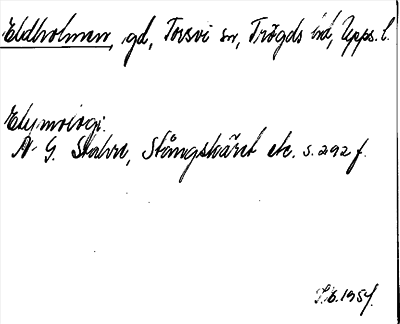 Ekholmen, gd, Torsvi sn, Trögds hd, Upps. l.
Etymologi.
N. G. Stahre, Stångskäret etc. s. 292 f.
1954.